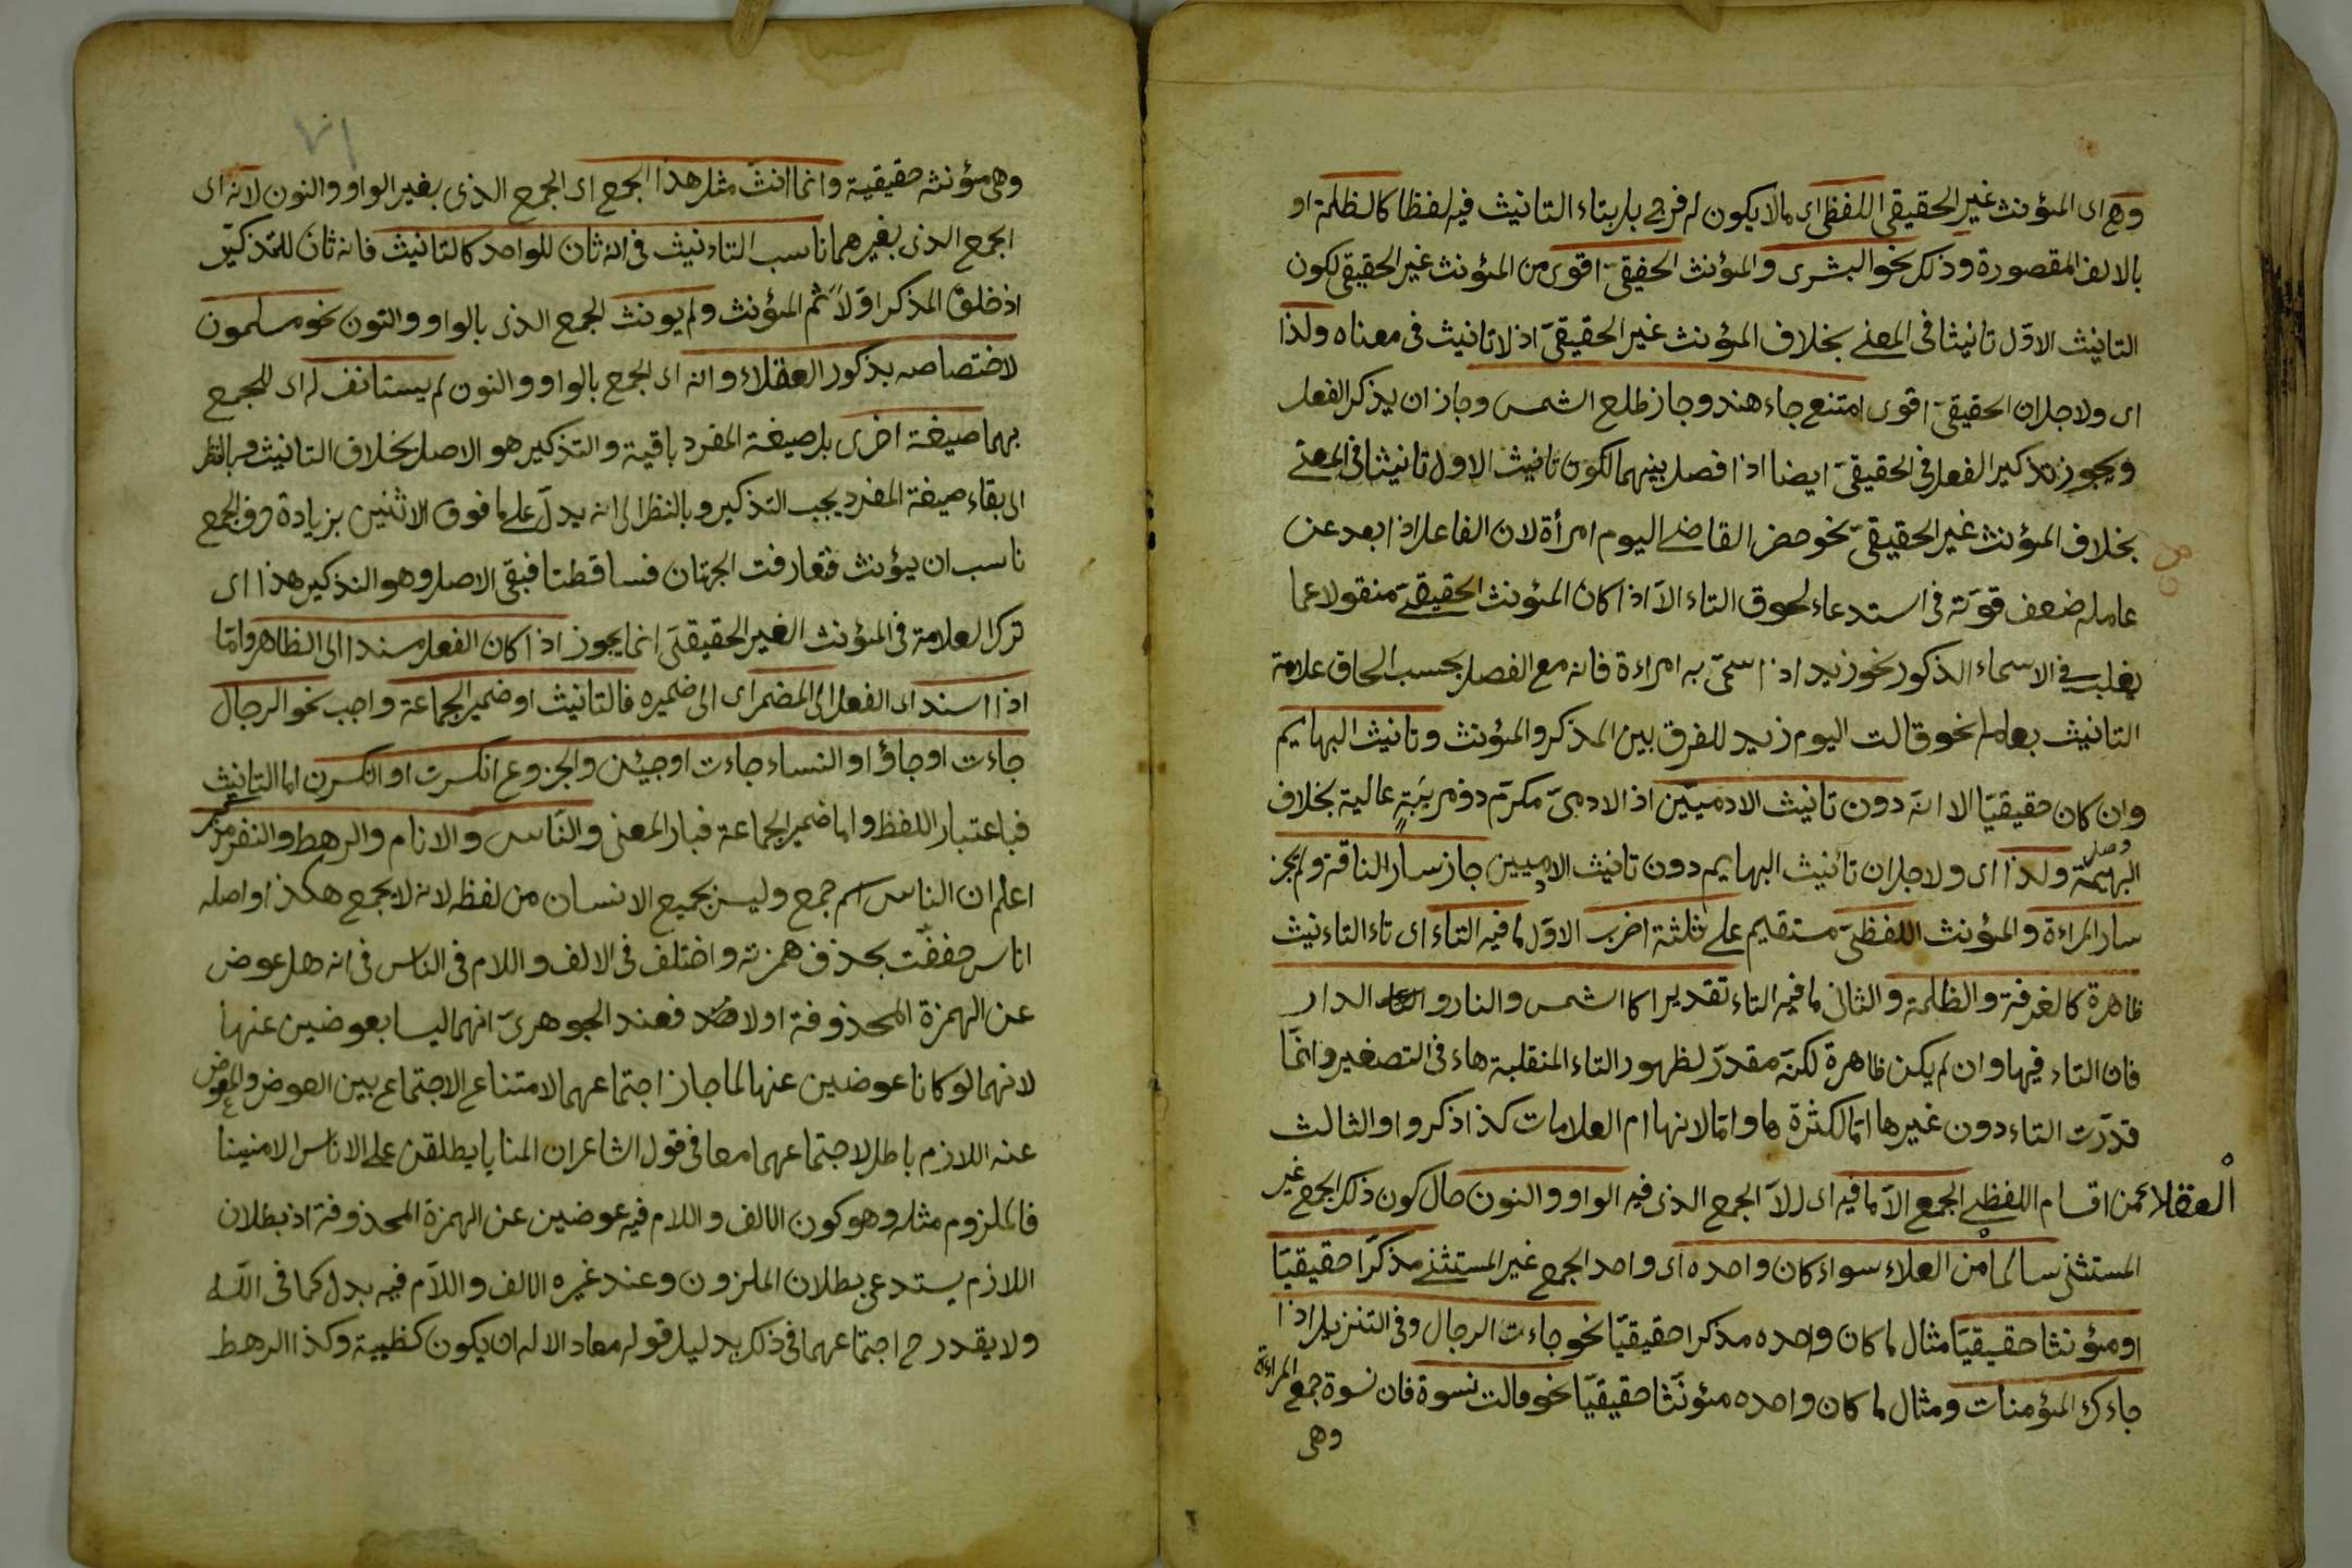 وهى اى المؤنث غير الحقيقى اللفظى اى مالا يكون له فرج بل بتاء التانيث فيه لفظا كالظلمة او
بالالف المقصورة وذلك نحو البشرى والمؤنث الحقيقى اقوى من المؤنث غير الحقيقى لكون
التانيث الاول تانيثا فى المعنى بخلاف المؤنث غير الحقيقى اذ لا تانيث فى معناه ولذا
اى ولاجل ان الحقيقى اقوى امتنع جاء هند وجاز طلع الشمس وجاز ان يذكر الفعل
ويجوز تذكير الفعل فى الحقيقى ايضا اذا فصل بينهما لكون تانيث الاول تانيثا فى المعنى
بخلاف المؤنث غير الحقيقى نحو حضر القاضى اليوم امرأة لان الفاعل اذا بعد عن
عامله ضعف قوته فى استدعاء لحوق التاء الا اذا كان المؤنث الحقيقى منقولا عما
يغلب فى الاسماء الذكور نحو زيد اذا سمى به امراءة فانه مع الفصل يحسب الحاق علامة
التانيث بعامله نحو قالت اليوم زيد للفرق بين المذكر والمؤنث وتانيث البهايم
وان كان حقيقيا الا انه دون تانيث الادميين اذ الادمى مكرم ذو مرتبة عالية بخلاف
البهيمة ولذا اى ولاجل ان تأنيث البهايم دون تانيث الادميين جاز سار الناقة ولم يجز
سار المراءة والمؤنث اللفظى مستقيم على ثلثة اضرب الاول ما فيه التاء اى تاء التاءنيث
ظاهرة كالغرفة والظلمة والثانى ما فيه التاء تقديرا كالشمس والنار و الدار
فان التاء فيها وان لم يكن ظاهرة لكنه مقدر لظهور التاء المنقلبة هاء فى التصغير وانما
قدرت التاء دون غيرها اما لكثرة ها واما لانها ام العلامات كذا ذكروا والثالث
العقلا من اقسام اللفظى الجمع الا ما فيه اى الا الجمع الذى فيه الواو والنون حال كون ذلك الجمع غير
المستثنى سالما من العلاء سواء كان واحده اى واحد الجمع غير المستثنى مذكرا حقيقيا
او مؤنثا حقيقيا مثال ما كان واحده مذكرا حقيقيا نحو جاءت الرجال وفى التنزيل اذا
جاءك المؤمنات ومثال ما كان واحده مؤنثا حقيقيا نحو قالت نسوة فان نسوة جمع المراءة
وهى
٧١
وهى مؤنثه حقيقية وانما انث مثل هذا الجمع اى الجمع الذى بغير الواو والنون لانه اى
الجمع الذى بغيرهما ناسب التاءنيث فى انه ثان للواحد كالتانيث فانه ثان للتذكير
اذ خلق المذكر اولا ثم المؤنث ولم يونث الجمع الذى بالواو والنون نحو مسلمون
لاختصاصه بذكور العقلاء وانه اى الجمع بالواو والنون لم يستانف له اى للجمع
بهما صيغة اخرى بل صيغة المفرد باقية والتذكير هو الاصل بخلاف التانيث فبالنظر
الى بقاء صيغة المفرد يجب التذكير وبالنظر الى انه يدل على ما فوق الاثنين بزيادة وفى الجمع
ناسب ان يؤنث فتعارفت الجهتان فتساقطتا فبقى الاصل وهو التذكير هذا اى
ترك العلامة فى المؤنث الغير الحقيقى انما يجوز اذا كان الفعل مسندا الى الظاهر واما
اذا اسند اى الفعل الى المضمر اى الى ضميره فالتانيث او ضمير الجماعة واجب نحو الرجال
جاءت او جاؤا والنساء جاءت او جيئن والجزوع انكسرت او انكسرن اما التانيث
فباعتبار اللفظ واما ضمير الجماعة فبار المعنى والناس والانام والرهط والنفر مذكر
اعلم ان الناس اسم جمع وليس بجميع الانسان من لفظه لانه لا يجمع هكذا واصله
اناس خففت بحذف همزته واختلف فى الالف واللام فى الناس فى انه هل عوض
عن الهمزة المحذوفة اولا فعند الجوهرى انهما ليسا بعوضين عنها
لانهما لو كانا عوضين عنها لما جاز اجتماعهما لامتناع الاجتماع بين العوض والمعوض
عنه اللازم باطل لاجتماعهما معا فى قول الشاعر ان المنايا يطلقن على الاناس الامنينا
فالملزوم مثله وهو كون الالف واللام فيه عوضين عن الهمزة المحذوفة اذ بطلان
اللازم يستدعى بطلان الملزون وعند غيره الالف واللام فيه بدل كما فى الله
ولا يقدر ح اجتماعهما فى ذلك بدليل قوله معاد الاله ان يكون كظبية وكذا الرهط